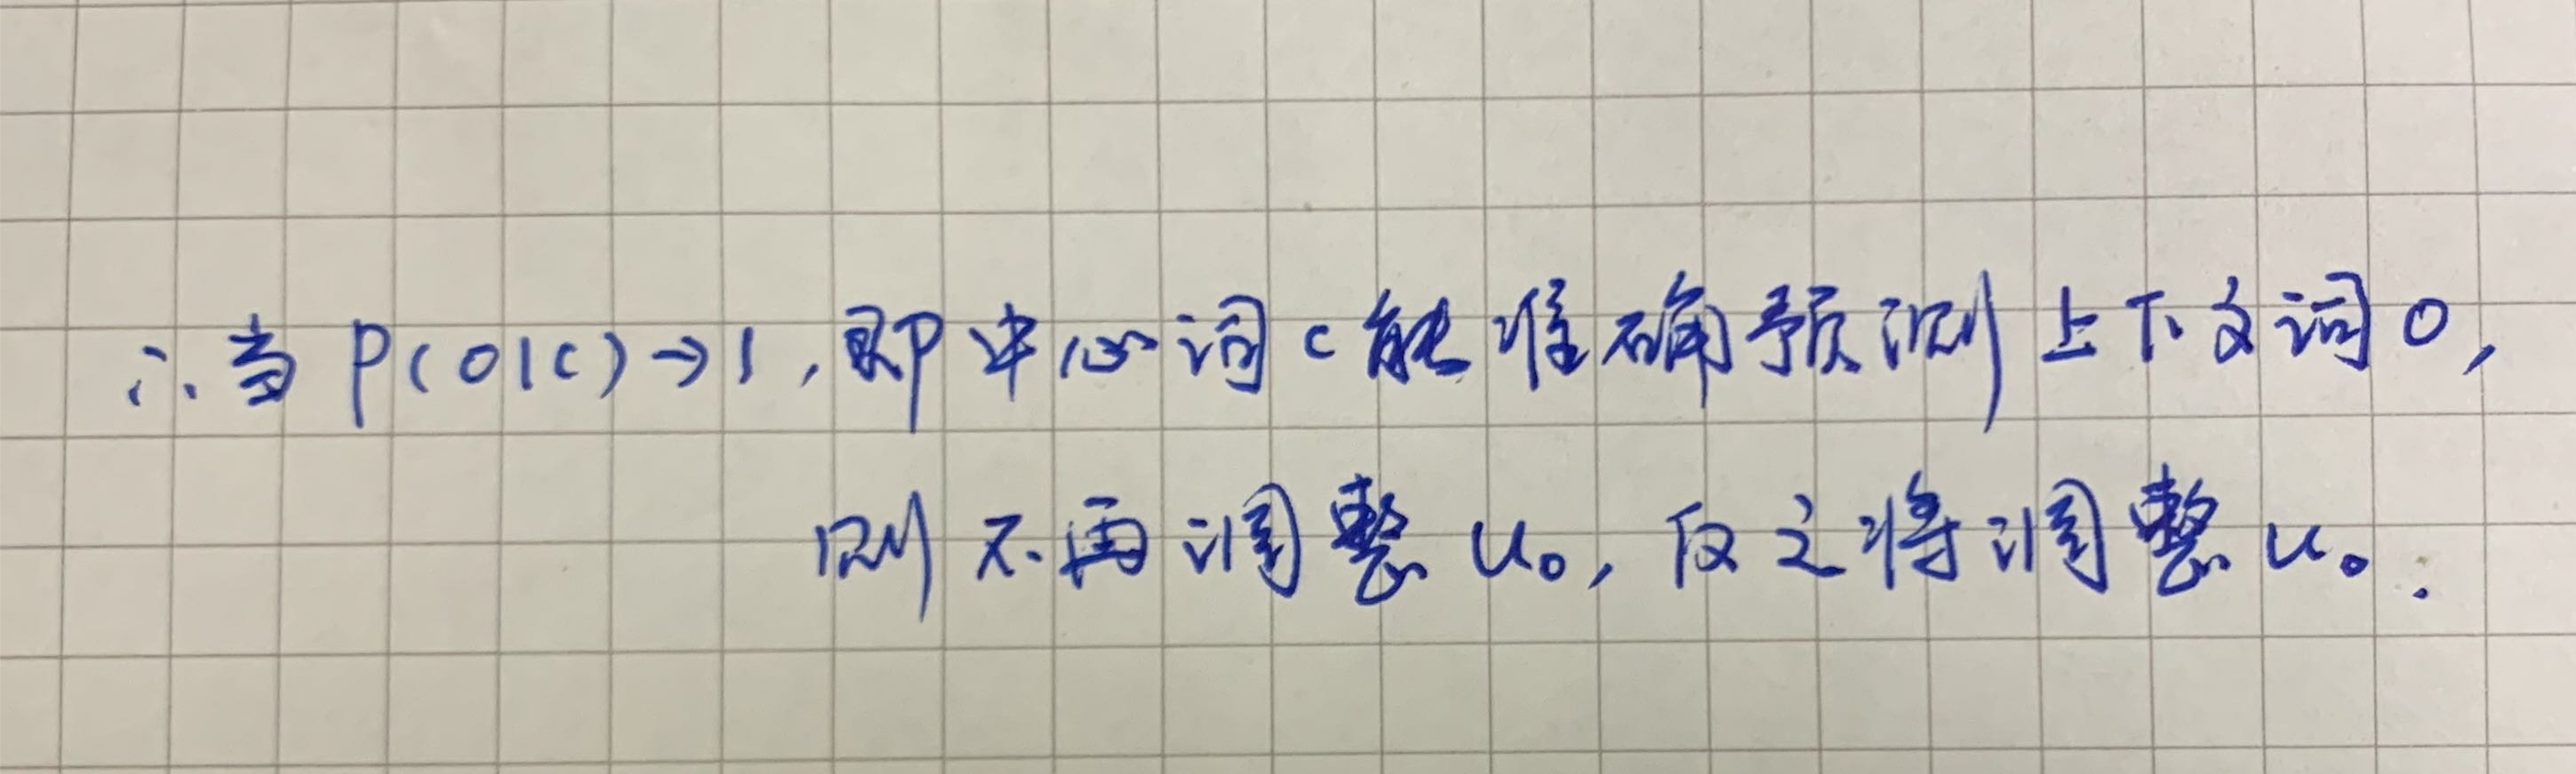 ∴当 P(O|C)→1,即中心词c能准确预测上下文词O,
则不再调整 u₀,反之将调整 u₀.